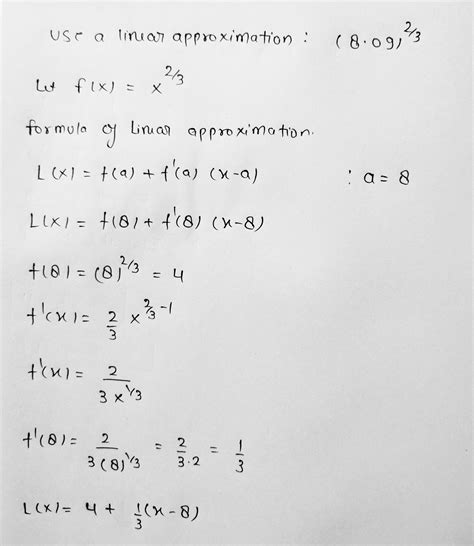 Use a linear approximation : (8.09)^{2/3}
Let f(x) = x^{2/3}
formula of linear approximation.
L(x) = f(a) + f'(a) (x-a) : a = 8
L(x) = f(8) + f'(8) (x-8)
f(8) = (8)^{2/3} = 4
f'(x) = 2/3 x^{2/3 - 1}
f'(x) = 2 / 3x^{1/3}
f'(8) = 2 / 3(8)^{1/3} = 2/3.2 = 1/3
L(x) = 4 + 1/3 (x-8)